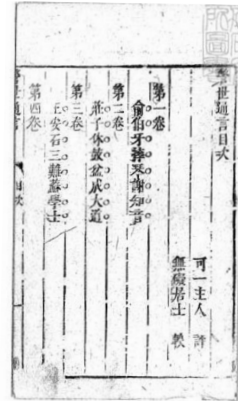 警世通言目次
可一主人 評
無礙居士 較
第一卷
俞伯牙摔琴謝知音
第二卷
莊子休鼓盆成大道
第三卷
王安石三難蘇學士
第四卷